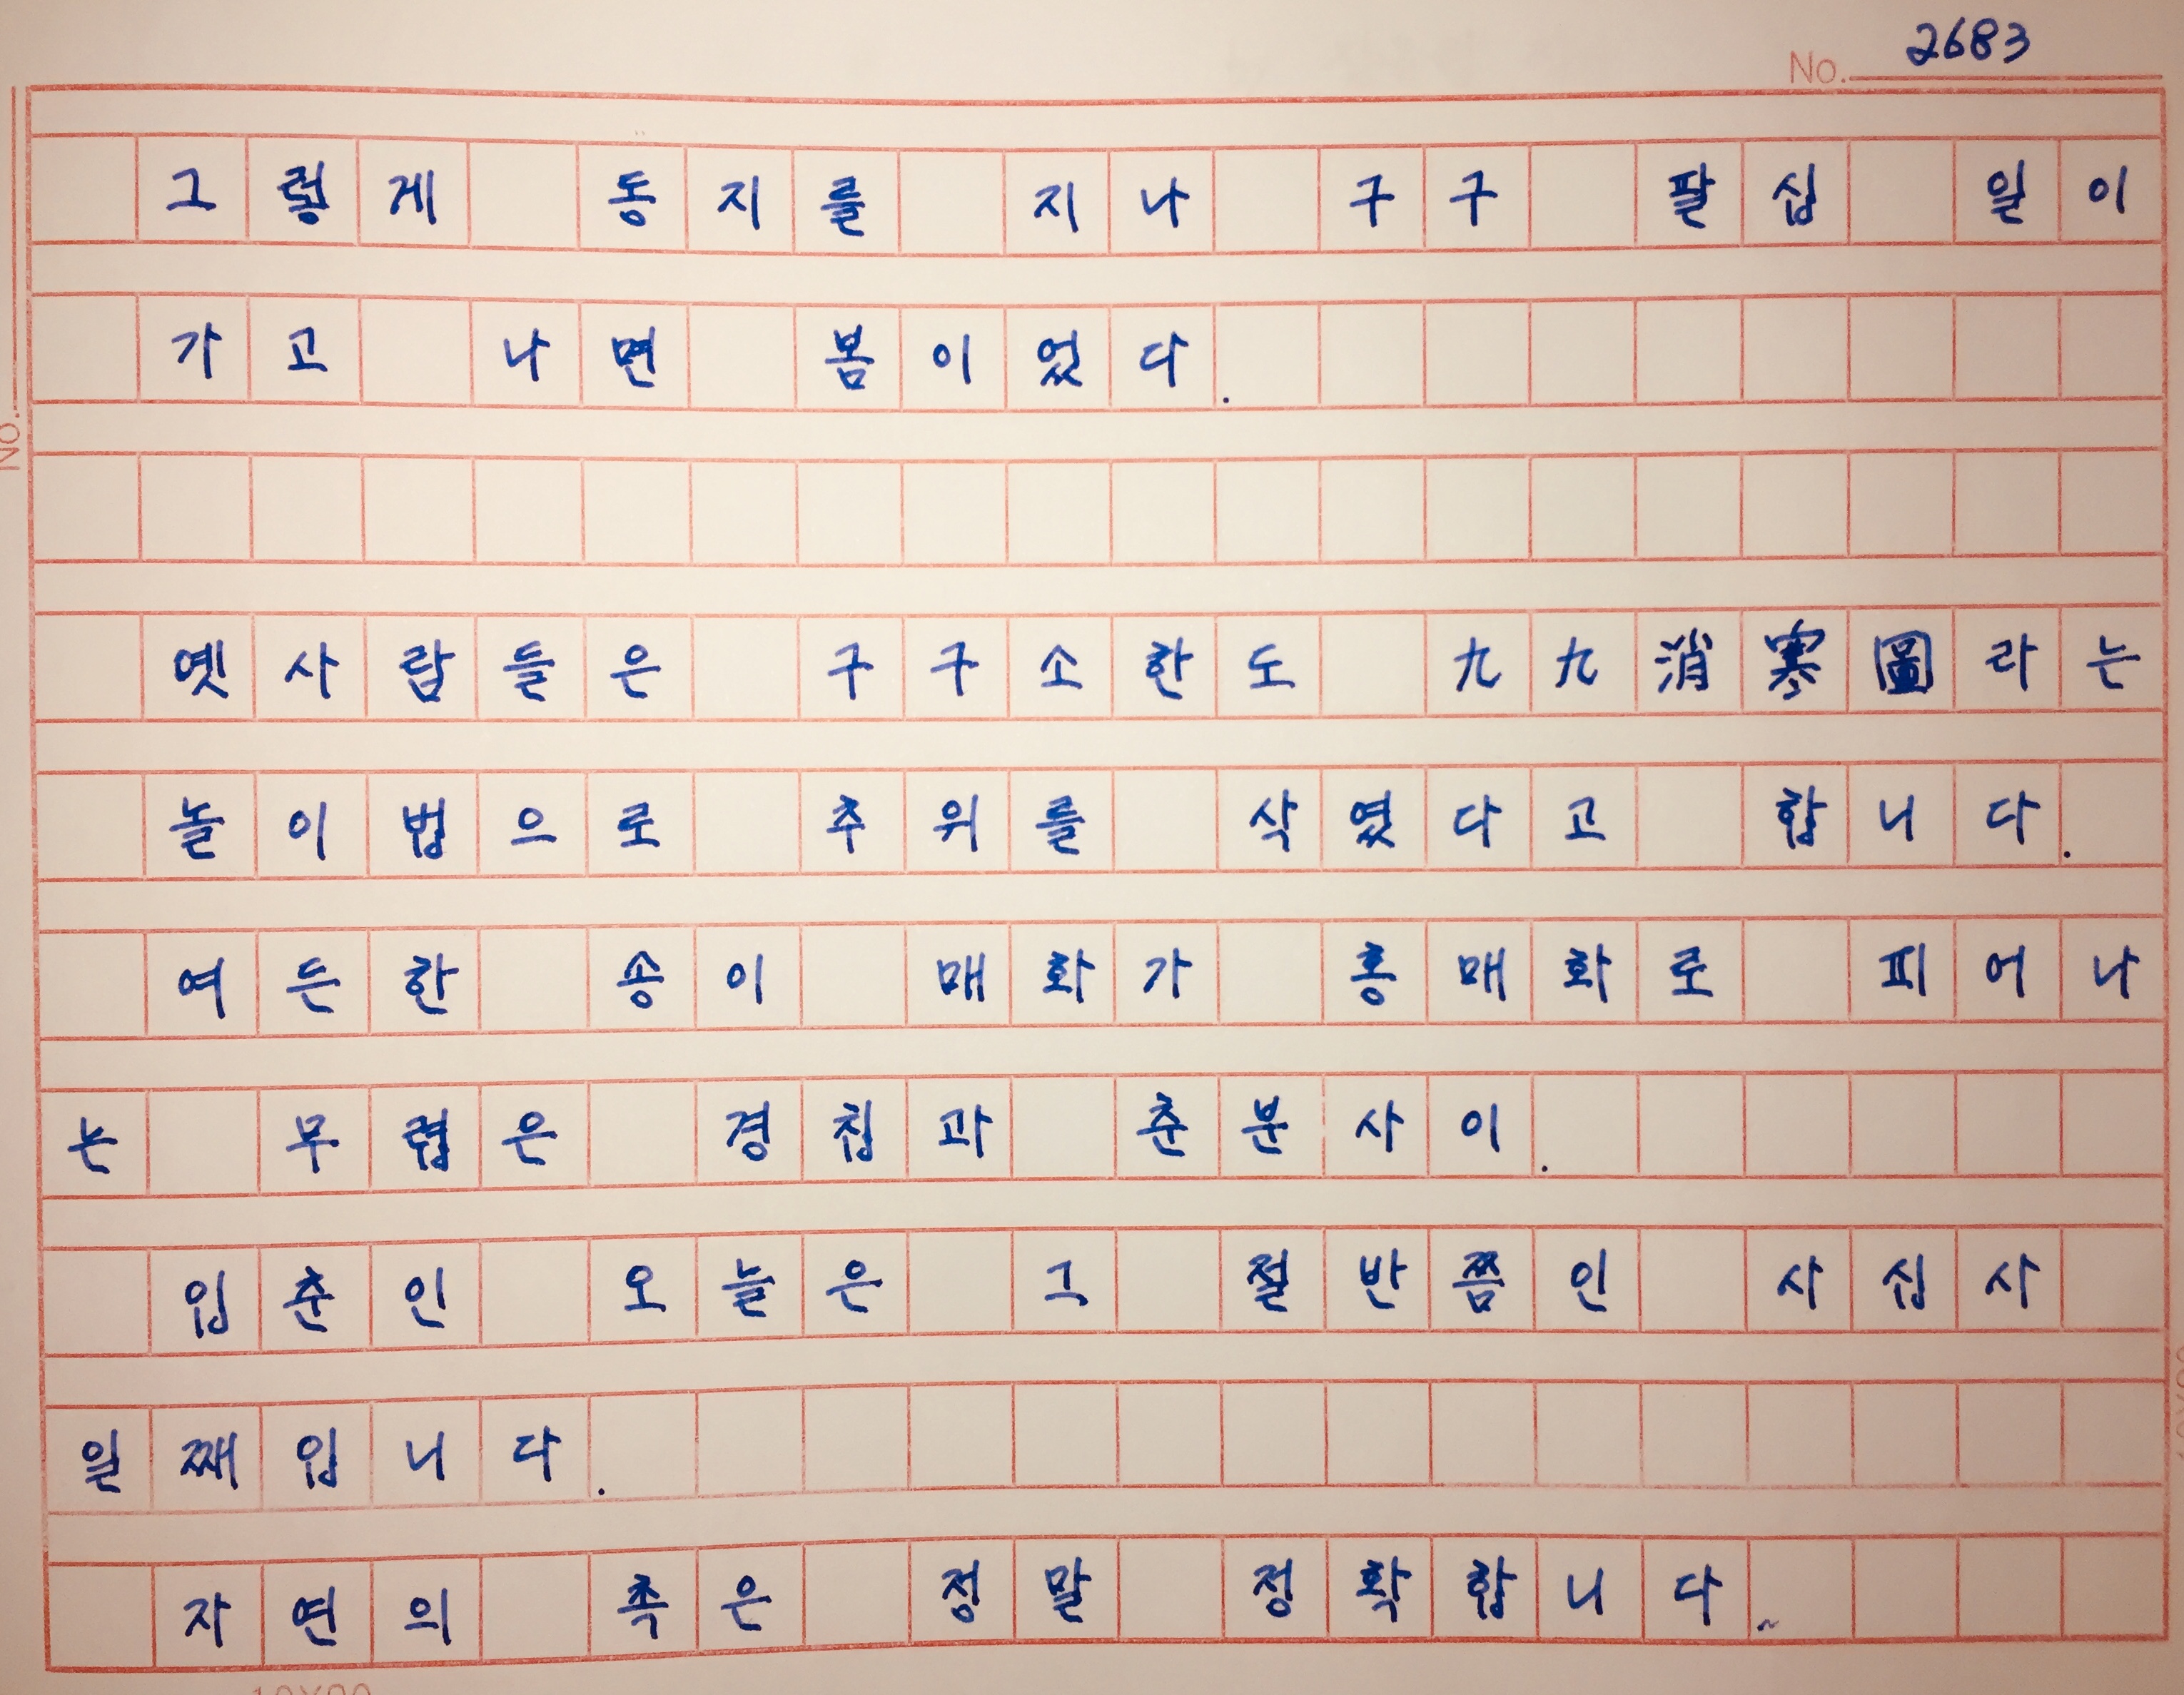 No. 2683
그렇게 동지를 지나 구구 팔십 일이
가고 나면 봄이었다.
옛사람들은 구구소한도 九九消寒圖라는
놀이법으로 추위를 삭였다고 합니다.
여든한 송이 매화가 홍매화로 피어나
는 무렵은 경칩과 춘분사이.
입춘인 오늘은 그 절반쯤인 사십사
일째입니다.
자연의 촉은 정말 정확합니다.
No.